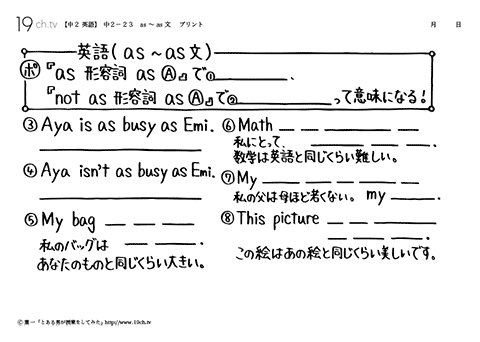 19ch.tv 【中2 英語】 中2－23 as ～ as 文 プリント 月 日
英語( as ～as 文)
ポ 『as 形容詞 as Ⓐ』で① 、
『not as 形容詞 as Ⓐ』で② って意味になる!
③ Aya is as busy as Emi.
④ Aya isn't as busy as Emi.
⑤ My bag
私のバッグは
あなたのものと同じくらい大きい。
⑥ Math
私にとって、
数学は英語と同じくらい難しい。
⑦ My
私の父は母ほど若くない。 my .
⑧ This picture
.
この絵はあの絵と同じくらい美しいです。
© 葉一「とある男が授業をしてみた」http://www.19ch.tv